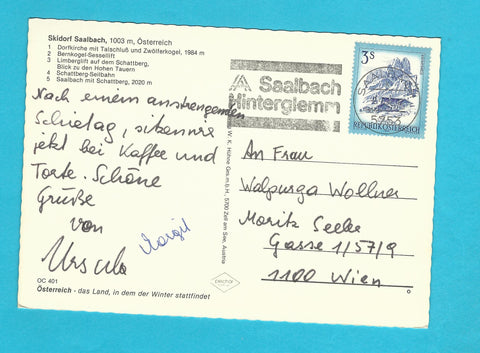 Skidorf Saalbach, 1003 m, Österreich
1 Dorfkirche mit Talschluß und Zwölferkogel, 1984 m
2 Bernkogel-Sessellift
3 Limberglift auf dem Schattberg,
Blick zu den Hohen Tauern
4 Schattberg-Seilbahn
5 Saalbach mit Schattberg, 2020 m
Nach einem anstrengenden
Schietag, sitzen wir
jetzt bei Kaffee und
Torte. Schöne
Grüße
von
Ursula
Margit
OC 401
Österreich - das Land, in dem der Winter stattfindet
W. K. Höhne Ges.m.b.H., 5700 Zell am See, Austria
Saalbach
Hinterglemm
3S
REPUBLIK ÖSTERREICH
An Frau
Walpurga Wollner
Moritz Seeler
Gasse 1/57/9
1100 Wien